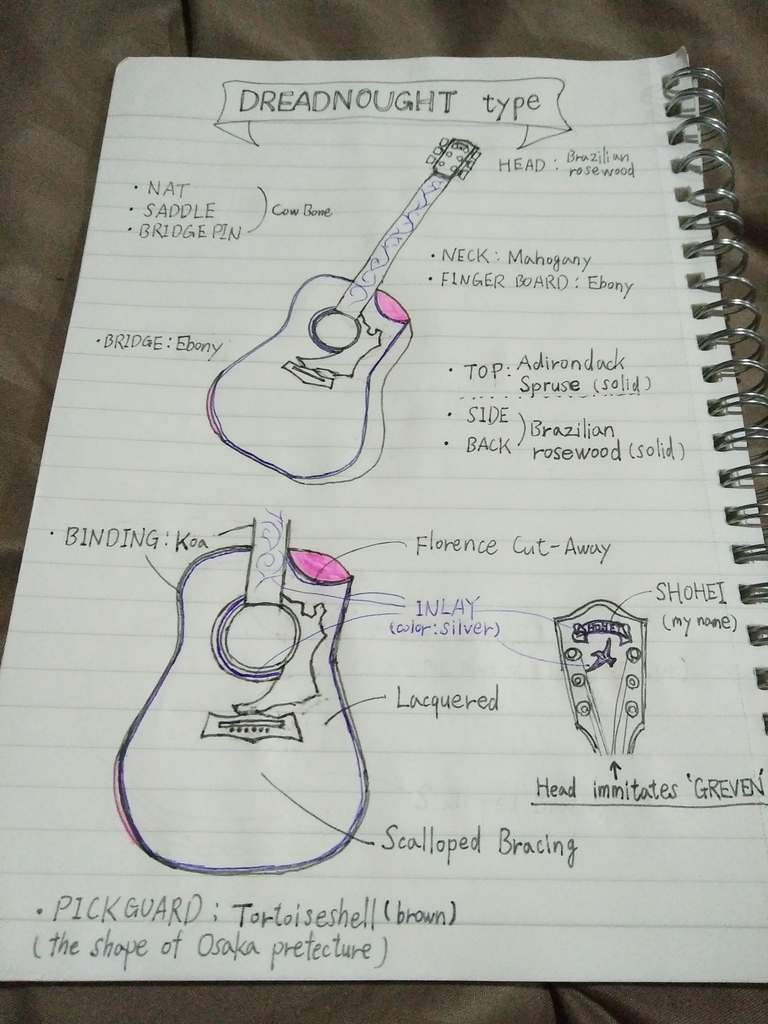 DREADNOUGHT type
HEAD : Brazilian
rosewood
· NAT
· SADDLE
· BRIDGE PIN
Cow Bone
· NECK : Mahogany
· FINGER BOARD : Ebony
· BRIDGE : Ebony
· TOP : Adirondack
Spruse (solid)
· SIDE
· BACK
Brazilian
rosewood (solid)
· BINDING : Koa
Florence Cut-Away
INLAY
(color : silver)
SHOHEI
(my name)
SHOHEI
Lacquered
Head immitates 'GREVEN'
Scalloped Bracing
· PICK GUARD : Tortoiseshell (brown)
(the shape of Osaka pretecture)